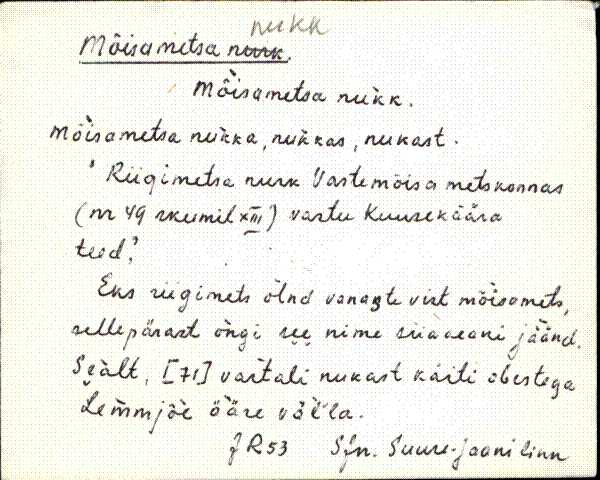 nukk
Mõisametsa nurk.
Mõisametsa nukk.
Mõisametsa nukka, nukkas, nukast.
'Riigimetsa nurk Vastemõisa metskonnas
(nr 49 skeemil XIII) vastu Kuusekäära
teed'.
Eks riigimets õlnd vanaste vist mõisamets,
sellepärast ongi see nime siiaaeani jäänd.
Seält, [71] vastali nukast käiti obestega
Lemmjõe ääre vällä.
J R53 Sjn. Suure-Jaani linn